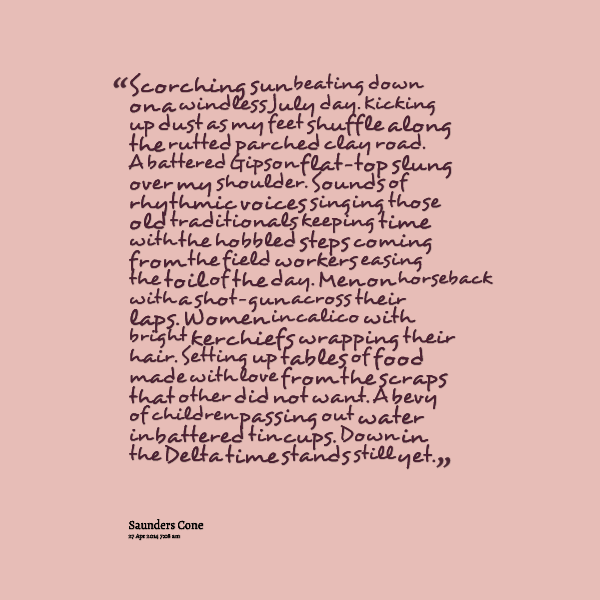 “Scorching sun beating down
on a windless July day. Kicking
up dust as my feet shuffle along
the rutted parched clay road.
A battered Gipson flat-top slung
over my shoulder. Sounds of
rhythmic voices singing those
old traditionals keeping time
with the hobbled steps coming
from the field workers easing
the toil of the day. Men on horseback
with a shot-gun across their
laps. Women in calico with
bright kerchiefs wrapping their
hair. Setting up tables of food
made with love from the scraps
that other did not want. A bevy
of children passing out water
in battered tin cups. Down in
the Delta time stands still yet.”
Saunders Cone
27 Apr 2014 7:08 am